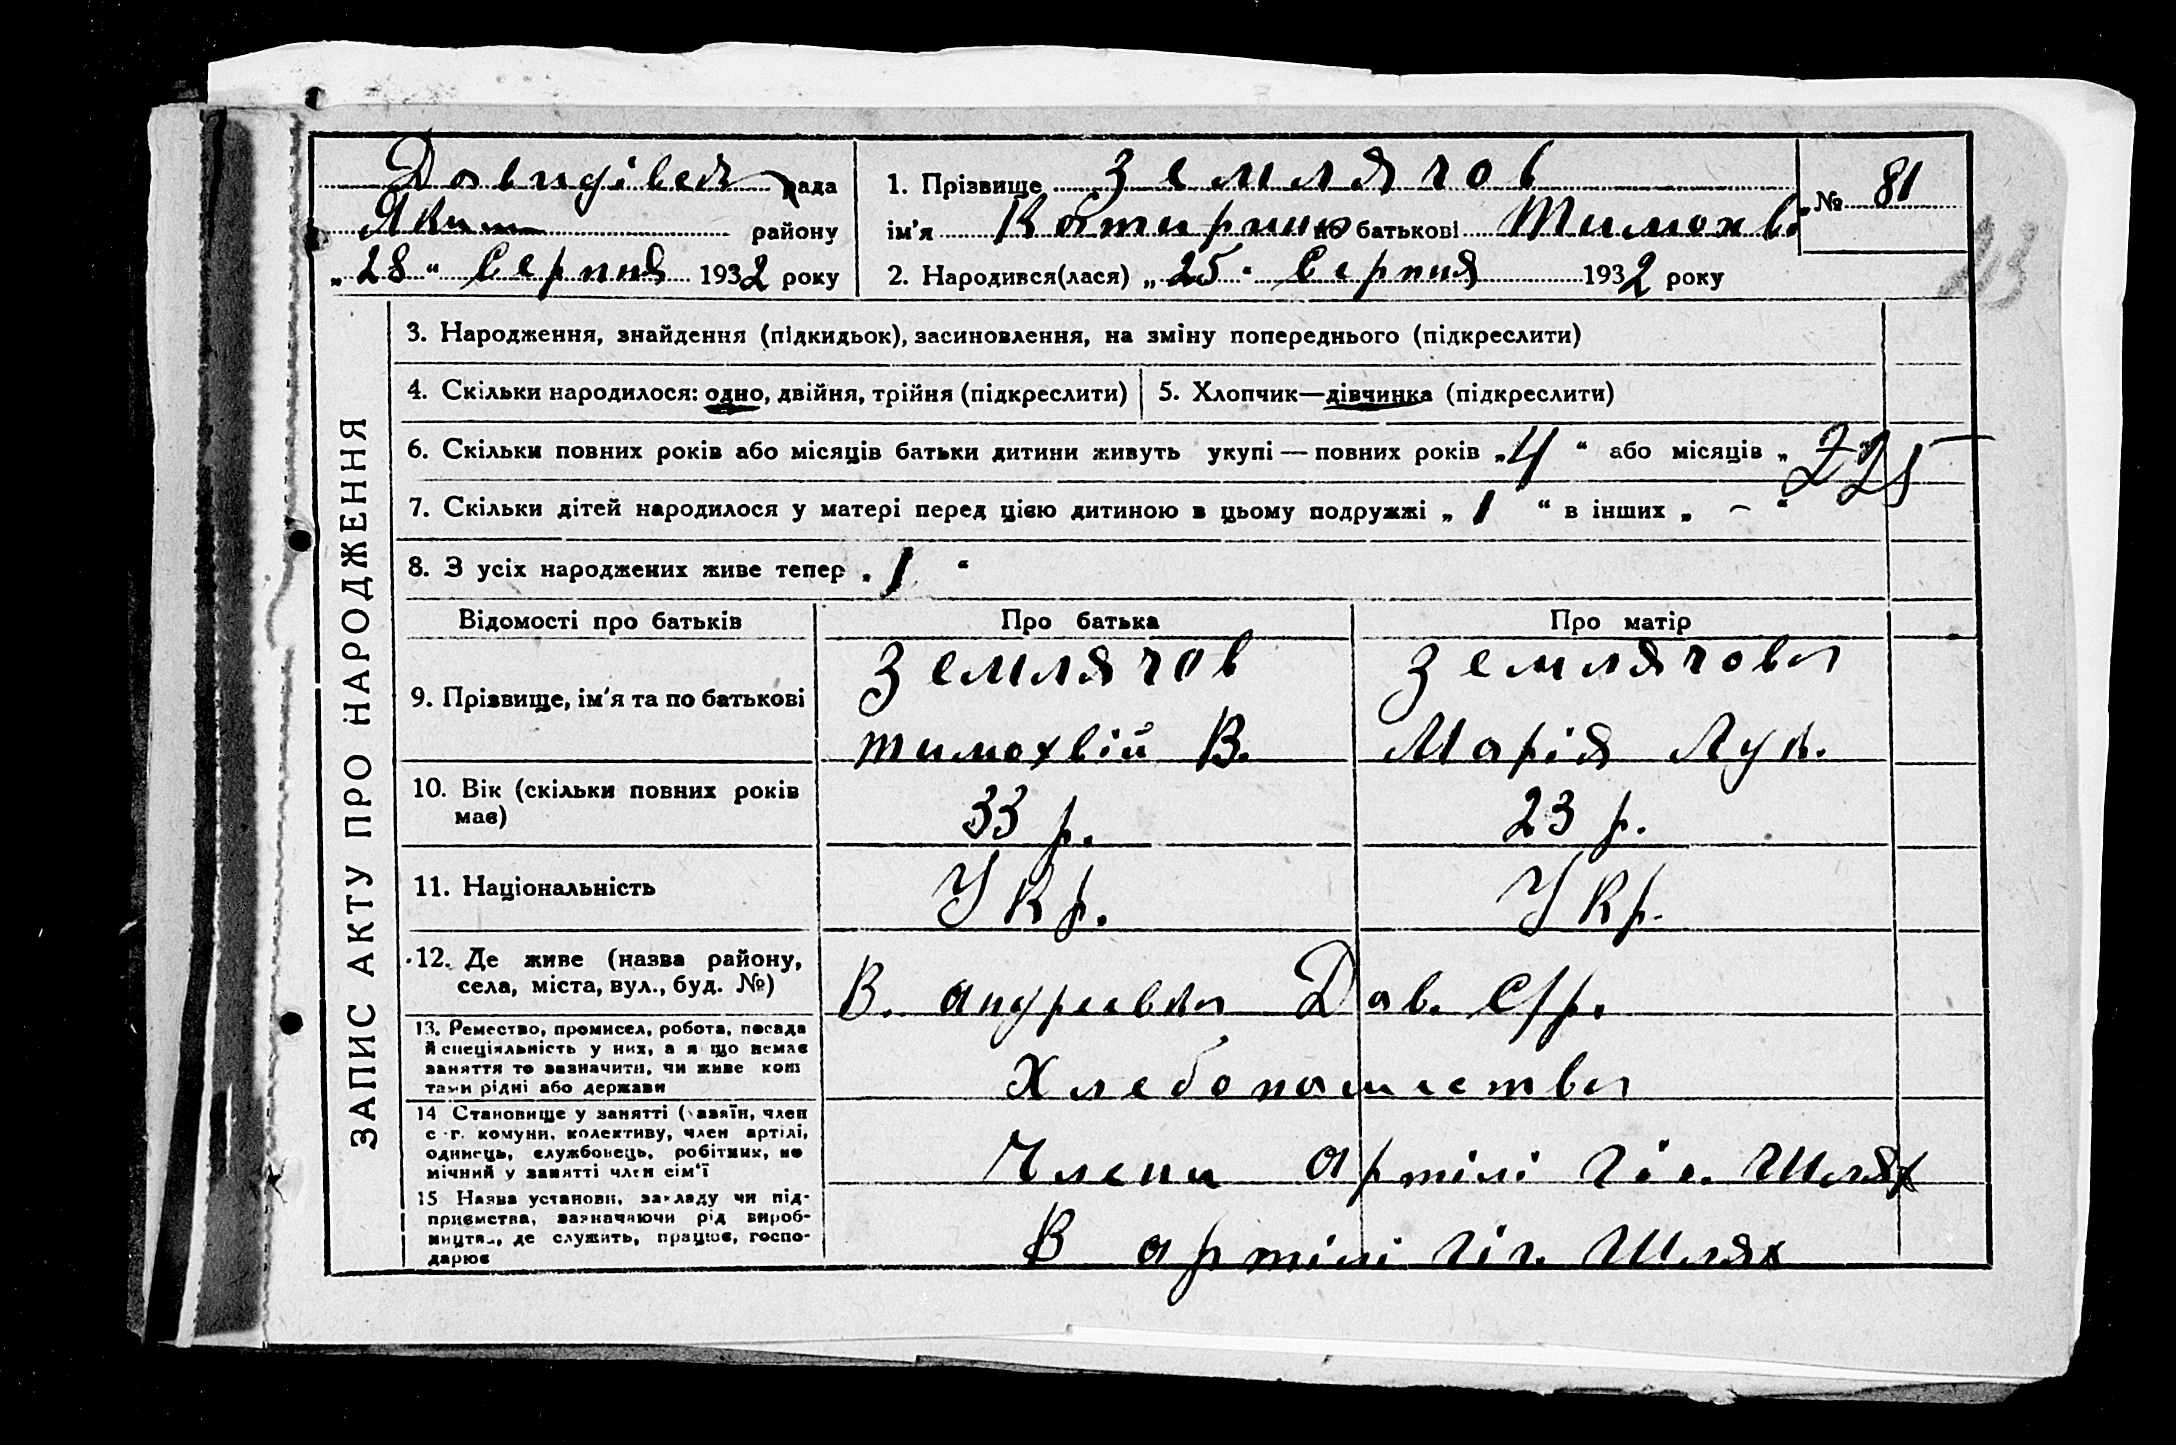 Довидівська рада
Яким району
„ 28 “ Серпня 1932 року
1. Прізвище Землячов
ім'я Катирина по батькові Тимохв.
2. Народився(лася) „ 25 “ Серпня 1932 року
№ 81
23
ЗАПИС АКТУ ПРО НАРОДЖЕННЯ
3. Народження, знайдення (підкидьок), засиновлення, на зміну попереднього (підкреслити)
4. Скільки народилося: одно, двійня, трійня (підкреслити)
5. Хлопчик—дівчинка (підкреслити)
6. Скільки повних років або місяців батьки дитини живуть укупі — повних років „ 4 “ або місяців „
225
7. Скільки дітей народилося у матері перед цією дитиною в цьому подружжі „ 1 “ в інших „ — “
8. З усіх народжених живе тепер „ 1 “
Відомості про батьків Про батька Про матір
9. Прізвище, ім'я та по батькові
Землячов Землячова
Тимохвій В. Марія Лук.
10. Вік (скільки повних років має)
33 р. 23 р.
11. Національність Укр. Укр.
12. Де живе (назва району,
села, міста, вул., буд. №)
В. Андріевка Дав. С/р.
13. Ремество, промисел, робота, посада
й спеціяльність у них, а якщо немає
заняття то зазначити, чи живе кош
тами рідні або держави
Хлебопашества
14 Становище у занятті (хазяїн, член
с.-г. комуни, колективу, член артілі,
одинець, службовець, робітник, по
мічний у занятті член сім'ї
Члени артілі Шлях
15 Назва установи, закладу чи під-
приємства, зазначаючи рід вироб-
ництва, де служить, працює, госпо-
дарює
В артілі Шлях